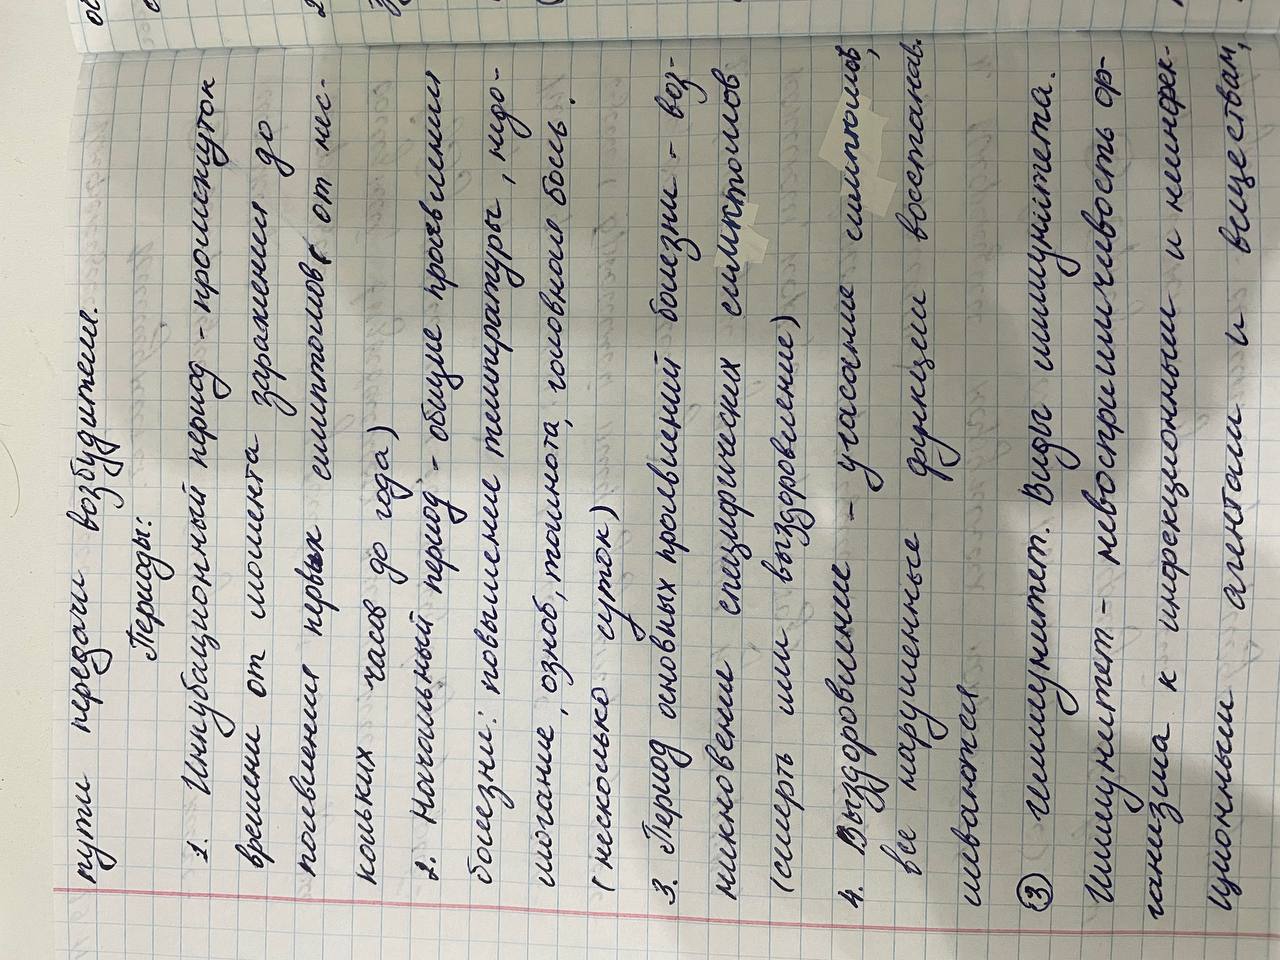 пути передачи возбудителя.
Периоды:
1. Инкубационный период - промежуток
времени от момента заражения до
появления первых симптомов( от нес-
кольких часов до года)
2. Начальный период - общие проявления
болезни: повышение температуры, недо-
могание, озноб, тошнота, головная боль.
(несколько суток)
3. Период основных проявлений болезни - воз-
никновение специфических симптомов
(смерть или выздоровление)
4. Выздоровление - угасание симптомов,
все нарушенные функции восстанав.
ливаются
3 Иммунитет. Виды иммунитета.
Иммунитет - невосприимчивость ор-
ганизма к инфекционным и неинфек-
ционным агентам и веществам,